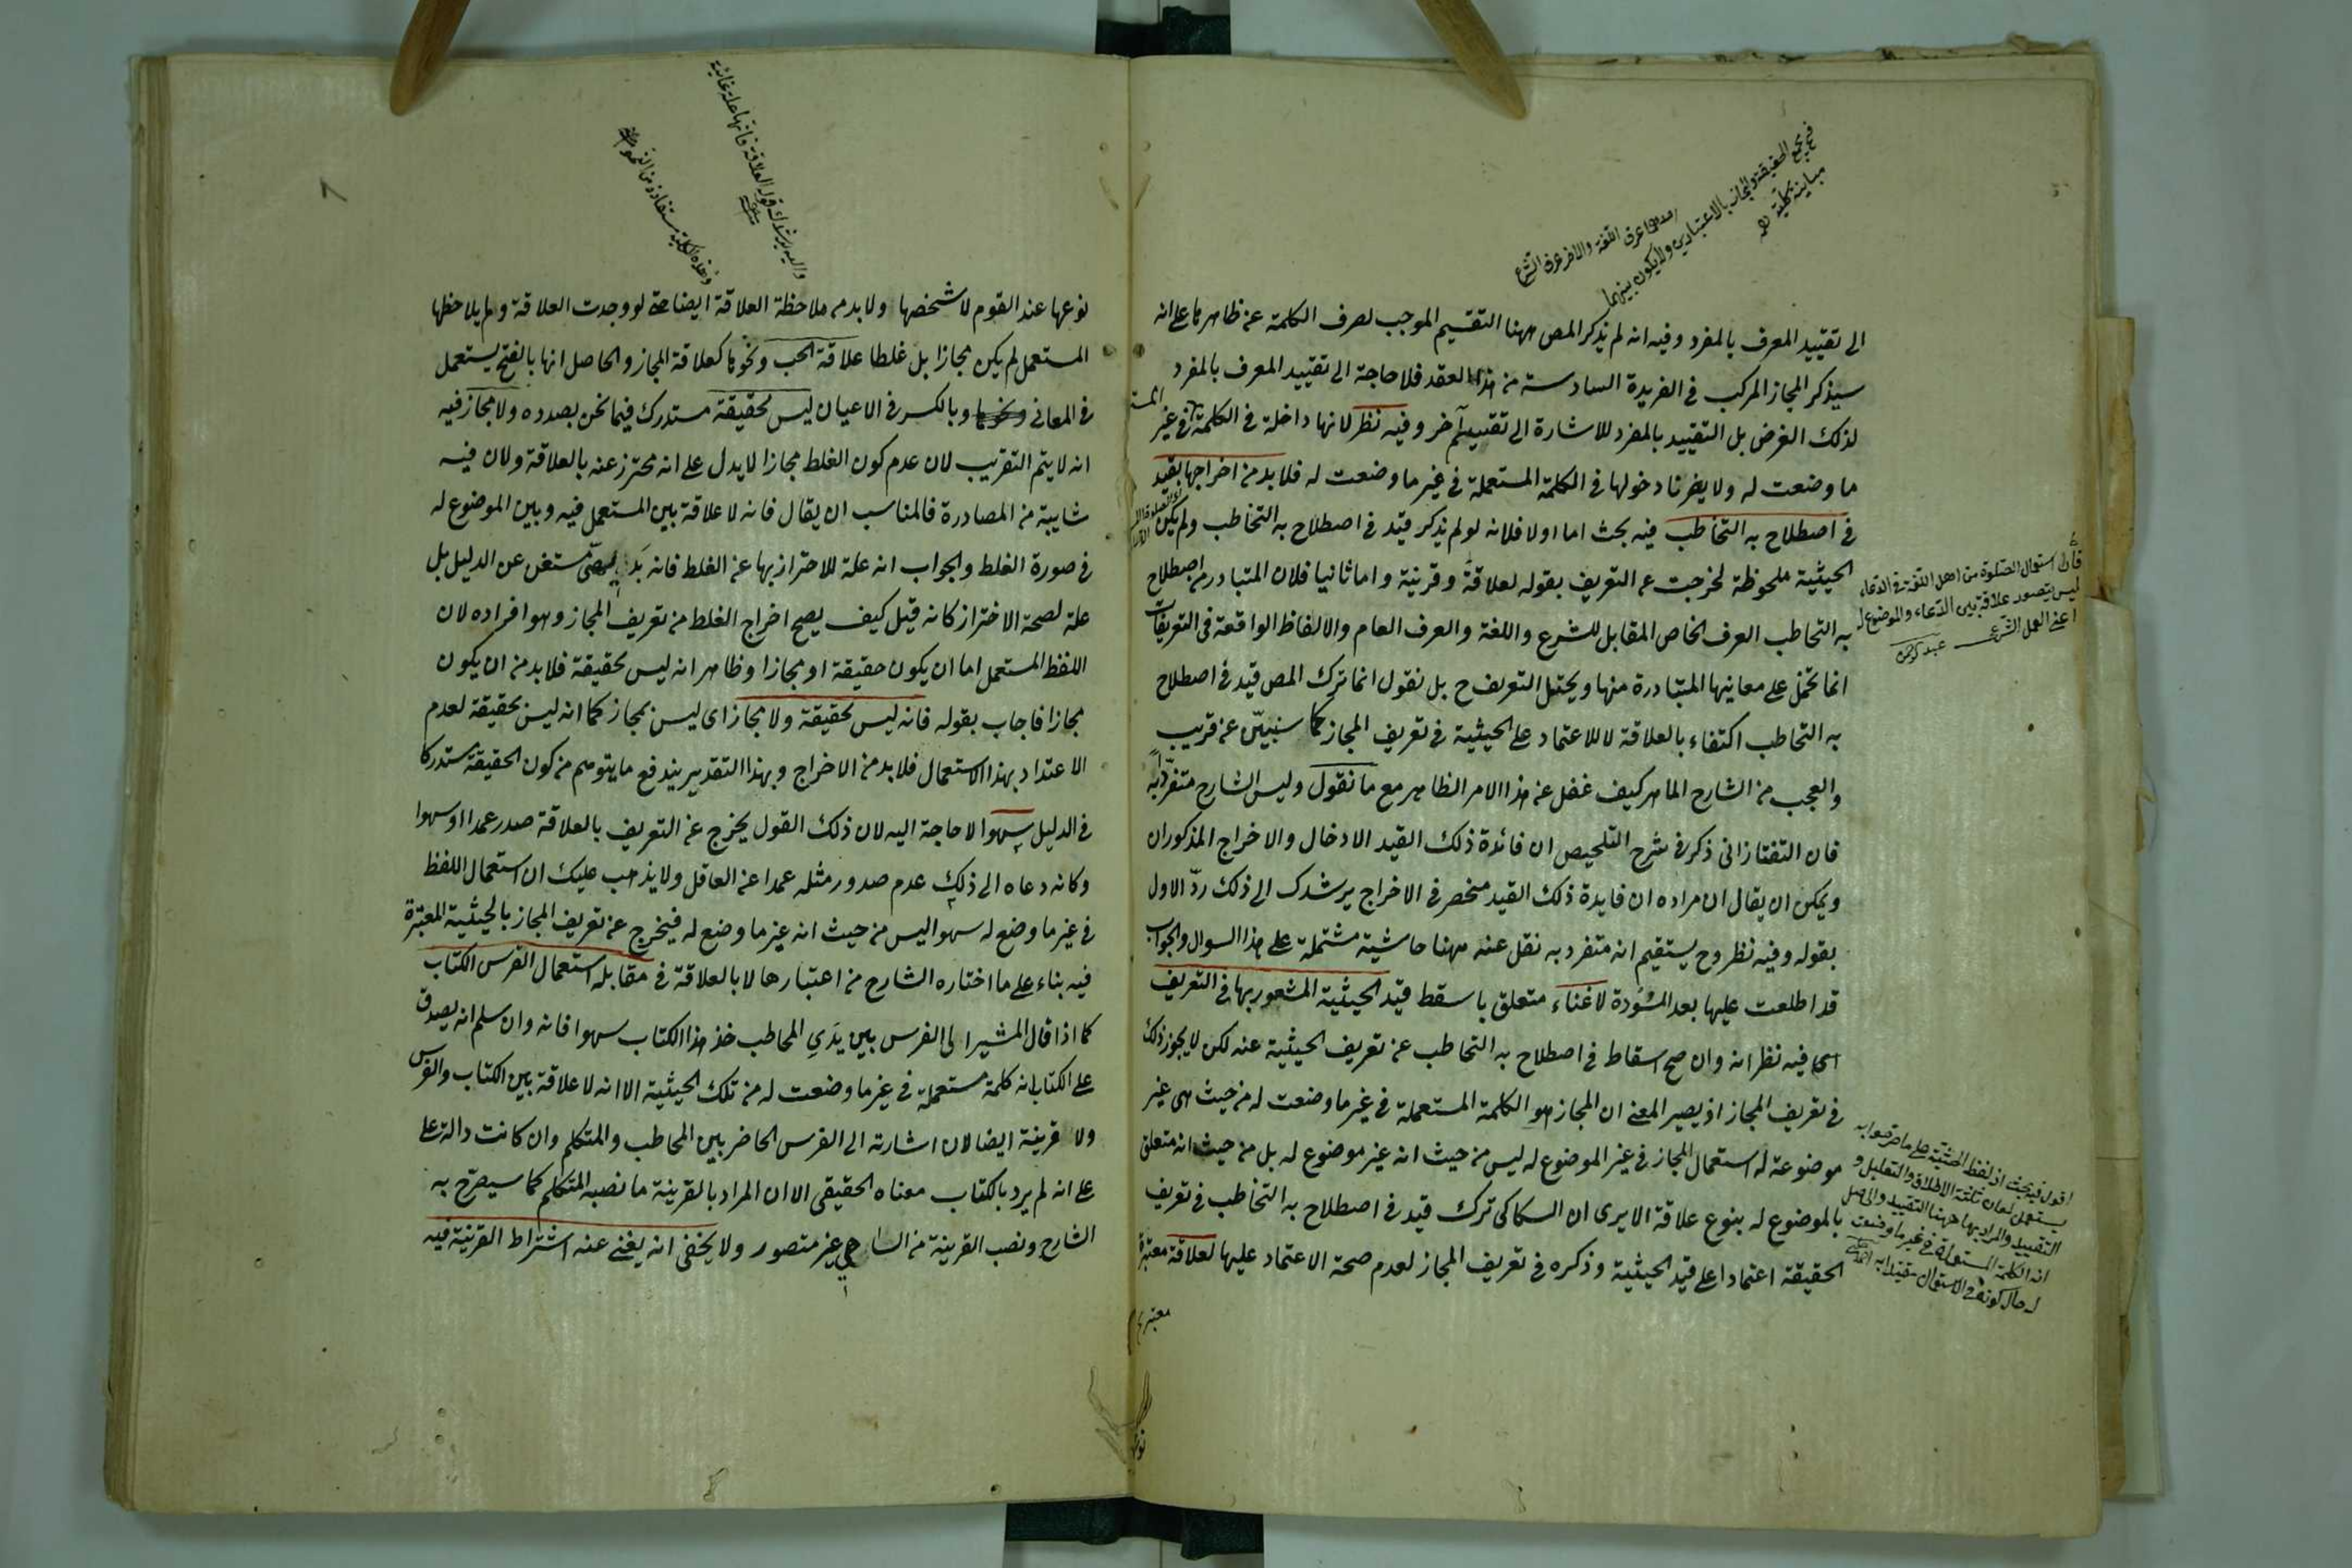 الى تقييد المعرف بالمفرد وفيه انه لم يذكر المص ههنا التقسيم الموجب لصرف الكلمة عن ظاهرها على انه
سيذكر المجاز المركب فى الفريدة السادسة من هذا العقد فلا حاجة الى تقييد المعرف بالمفرد
لذلك الغرض بل التقييد بالمفرد للاشارة الى تقييد آخر وفيه نظر لانها داخلة فى الكلمة فى غير
ما وضعت له ولا يضرنا دخولها فى الكلمة المستعملة فى غير ما وضعت له فلا بد من اخراجها بقيد
فى اصطلاح به التخاطب فيه بحث اما اولا فلانه لو لم يذكر قيد فى اصطلاح به التخاطب ولم يكن
الحيثية ملحوظة لخرجت عن التعريف بقوله لعلاقة وقرينة واما ثانيا فلان المتبادر من اصطلاح
به التخاطب العرف الخاص المقابل للشرع واللغة والعرف العام والالفاظ الواقعة فى التعريفات
انما تحمل على معانيها المتبادرة منها ويختل التعريف ح بل نقول انما ترك المص قيد فى اصطلاح
به التخاطب اكتفاء بالعلاقة لا للاعتماد على الحيثية فى تعريف المجاز كما سنبيّن عن قريب
والعجب من الشارح الماهر كيف غفل عن هذا الامر الظاهر مع ما نقول وليس الشارح متفرّدا به
فان التفتازانى ذكر فى شرح التلخيص ان فائدة ذلك القيد الادخال والاخراج المذكوران
ويمكن ان يقال ان مراده ان فايدة ذلك القيد منحصر فى الاخراج يرشدك الى ذلك ردّ الاول
بقوله وفيه نظر وح يستقيم انه متفرد به نقل عنه ههنا حاشية مشتملة على هذا السوال والجواب
قد اطلعت عليها بعد المسودة لا غناء متعلق باسقط قيد الحيثية المشعور بها فى التعريف
اى فيه نظر انه وان صح اسقاط فى اصطلاح به التخاطب عن تعريف الحيثية عنه لكن لا يجوز ذلك
فى تعريف المجاز اذ يصير المعنى ان المجاز هو الكلمة المستعملة فى غير ما وضعت له من حيث هى غير
موضوعة له استعمال المجاز فى غير الموضوع له ليس من حيث انه غير موضوع له بل من حيث انه متعلق
بالموضوع له بنوع علاقة الا يرى ان السكاكى ترك قيد فى اصطلاح به التخاطب فى تعريف
الحقيقة اعتمادا على قيد الحيثية وذكره فى تعريف المجاز لعدم صحة الاعتماد عليها لعلاقة معتبرة
فان استعمال الصلوة من اهل اللغة فى الدعاء
ليس يتصور علاقة بين الدعاء والموضوع له
اعنى العمل الشرعى
اقول فيه بحث اذ لفظ الحيثية على ما صرحوا به
يستعمل لمعان ثلثة الاطلاق والتعليل و
التقييد والمراد بها ههنا التقييد والحاصل
انه الكلمة المستعملة فى غير ما وضعت
له حال كونه فى الاستعمال مقيدا به
نوعها عند القوم لا شخصها ولا بد من ملاحظة العلاقة ايضا حتى لو وجدت العلاقة ولم يلاحظها
المستعمل لم يكن مجازا بل غلطا علاقة الحب ونحوها كعلاقة المجاز والحاصل انها بالفتح يستعمل
فى المعانى وبالكسر فى الاعيان ليس بحقيقة مستدرك فيما نحن بصدده ولا مجاز فيه
انه لا يتم التقريب لان عدم كون الغلط مجازا لا يدل على انه محترز عنه بالعلاقة ولان فيه
شايبة من المصادرة فالمناسب ان يقال فانه لا علاقة بين المستعمل فيه وبين الموضوع له
فى صورة الغلط والجواب انه علة للاحتراز بها عن الغلط فانه مستغن عن الدليل بل
علة لصحة الاحتراز كانه قيل كيف يصح اخراج الغلط من تعريف المجاز وهو افراده لان
اللفظ المستعمل اما ان يكون حقيقة او مجازا وظاهر انه ليس بحقيقة فلا بد من ان يكون
مجازا فاجاب بقوله فانه ليس بحقيقة ولا مجاز اى ليس بمجاز كما انه ليس بحقيقة لعدم
الاعتداد بهذا الاستعمال فلا بد من الاخراج وبهذا التقدير يندفع ما يتوهم من كون الحقيقة مستدركا
فى الدليل سهوا لا حاجة اليه لان ذلك القول يخرج عن التعريف بالعلاقة صدر عمدا او سهوا
وكانه دعاه الى ذلك عدم صدور مثله عمدا عن العاقل ولا يذهب عليك ان استعمال اللفظ
فى غير ما وضع له سهوا ليس من حيث انه غير ما وضع له فيخرج عن تعريف المجاز بالحيثية المعتبرة
فيه بناء على ما اختاره الشارح من اعتبارها لا بالعلاقة فى مقابلة استعمال الفرس الكتاب
كما اذا قال المشير الى الفرس بين يدى المخاطب خذ هذا الكتاب سهوا فانه وان سلم انه يصدق
على الكتاب انه كلمة مستعملة فى غير ما وضعت له من تلك الحيثية الا انه لا علاقة بين الكتاب والفرس
ولا قرينة ايضا لان اشارته الى الفرس الحاضر بين المخاطب والمتكلم وان كانت دالة على
على انه لم يرد بالكتاب معناه الحقيقى الا ان المراد بالقرينة ما نصبه المتكلم كما سيصرح به
الشارح ونصب القرينة من الساهى غير متصور ولا يخفى انه يغنى عنه اشتراط القرينة فيه